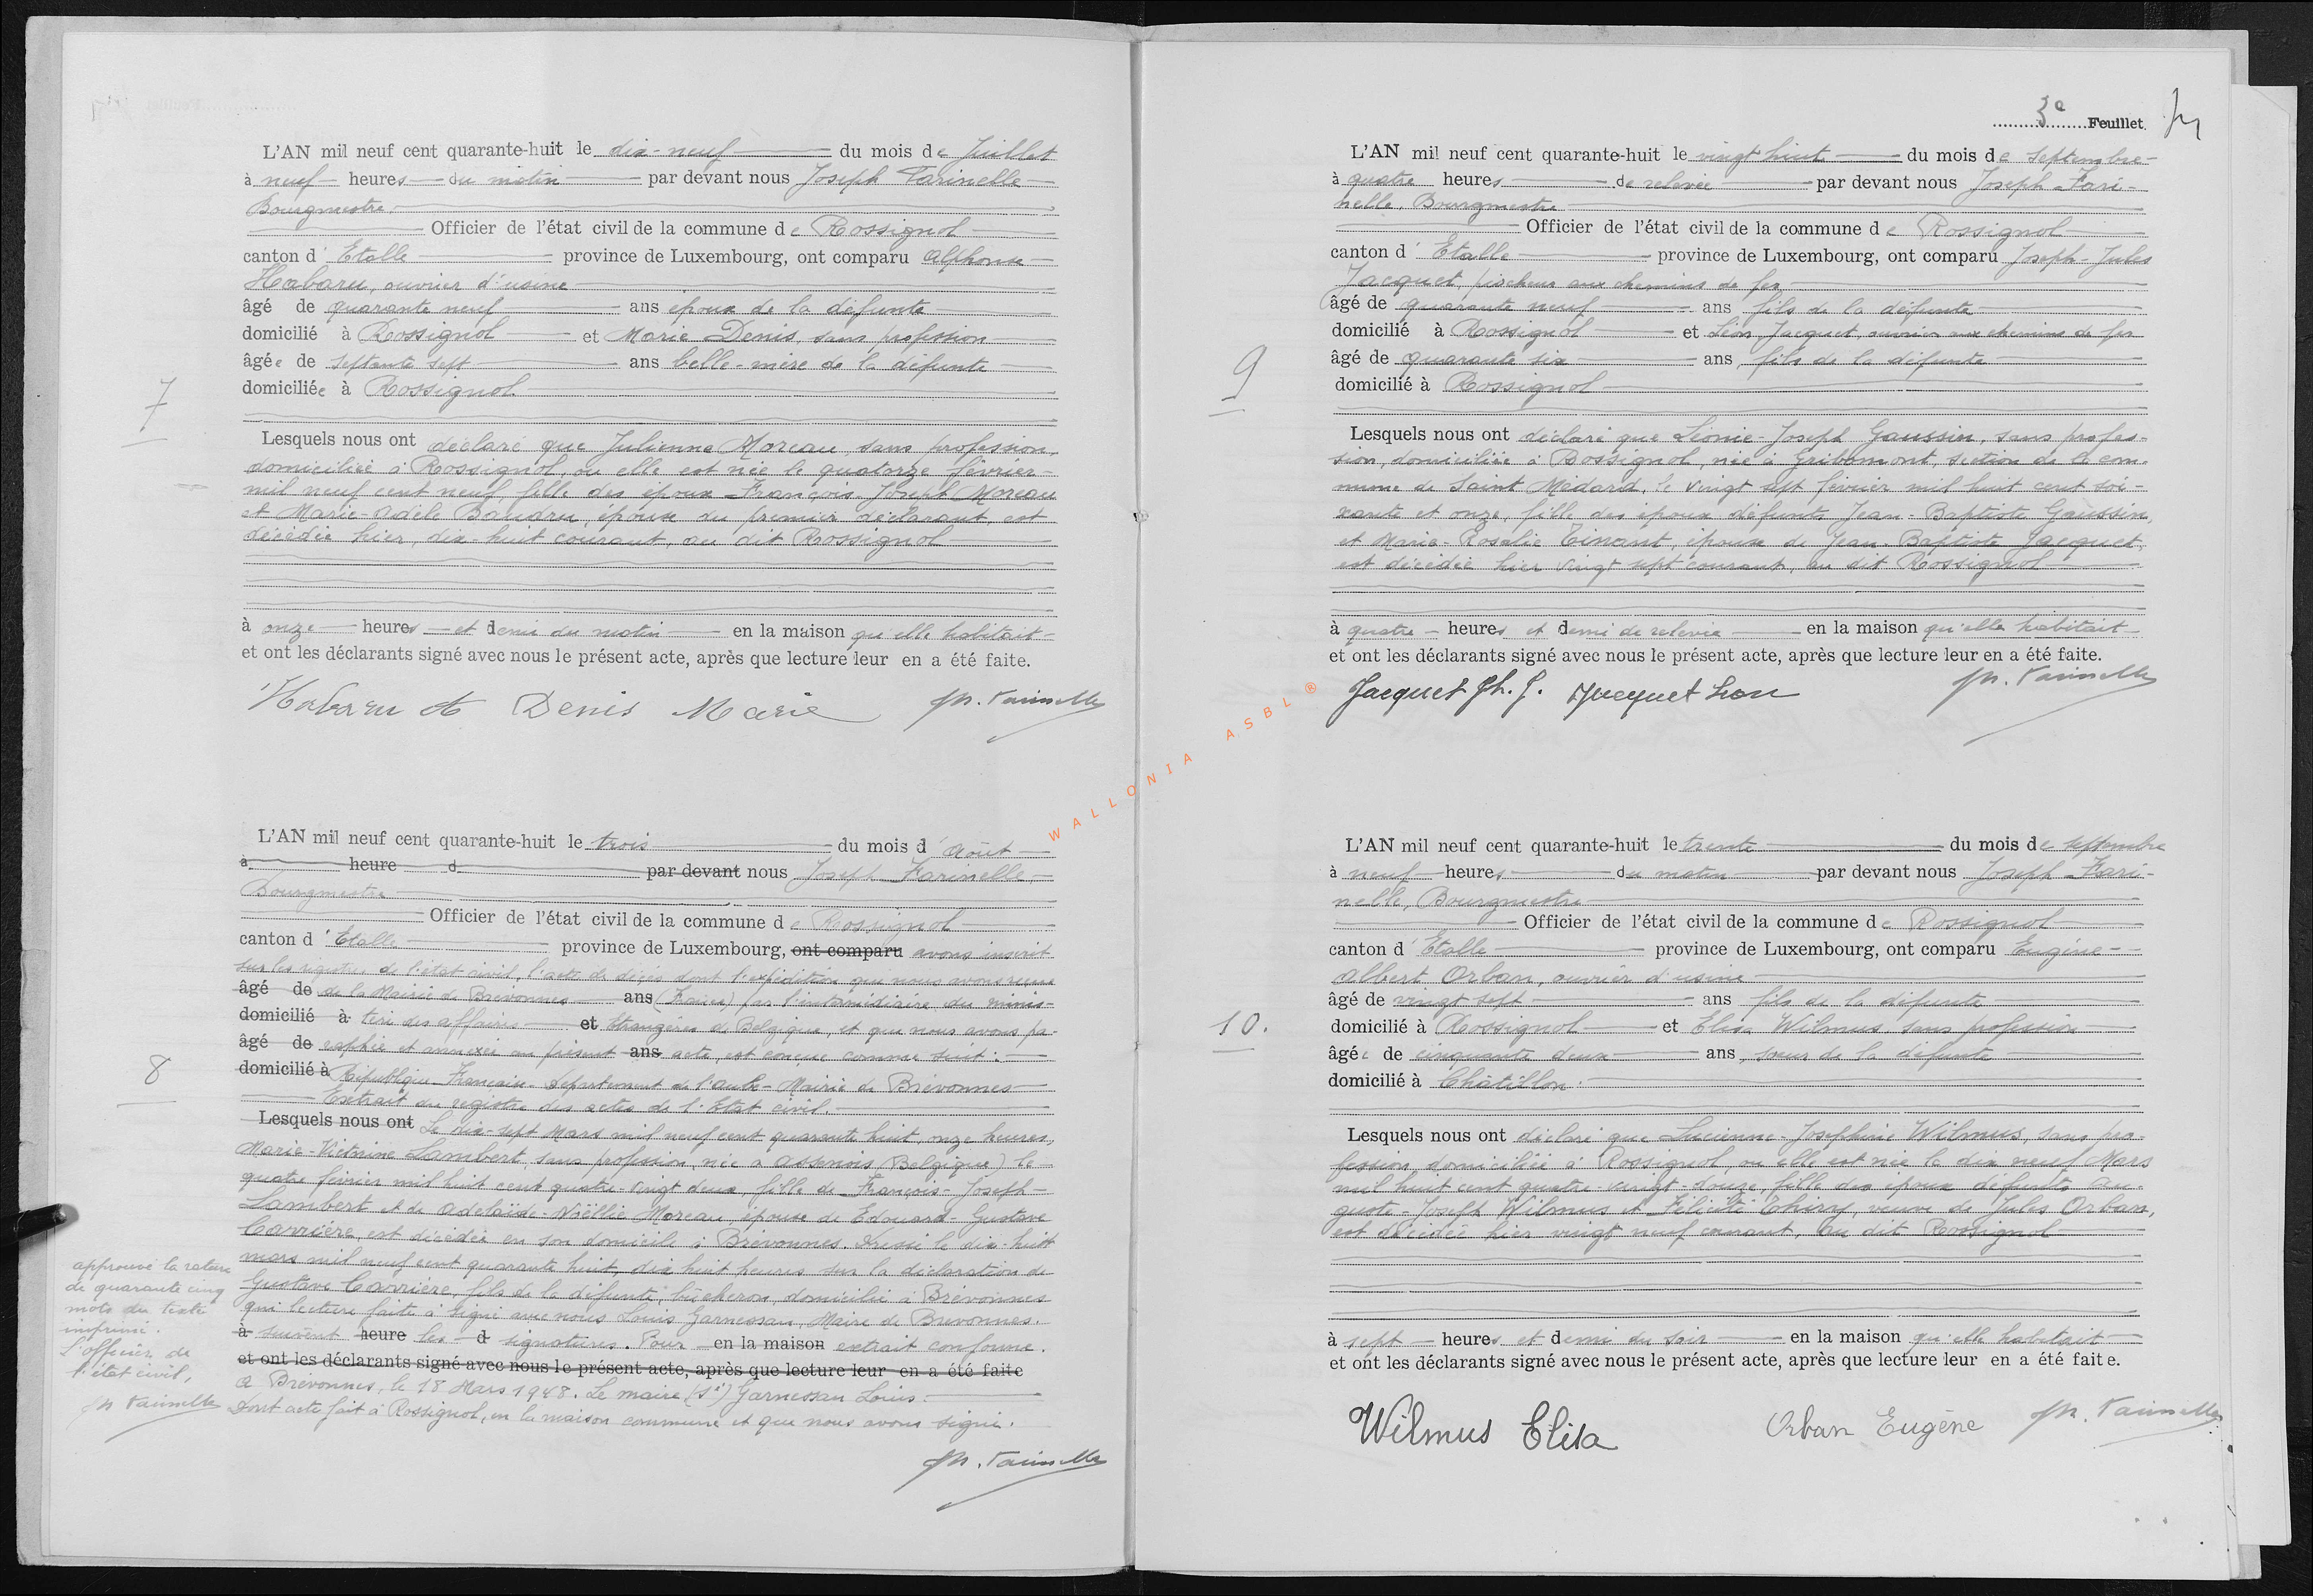 L'AN mil neuf cent quarante-huit le dix-neuf du mois de Juillet
à neuf heures du matin par devant nous Joseph Farinelle
Bourgmestre
Officier de l'état civil de la commune de Rossignol
canton d'Etalle province de Luxembourg, ont comparu Alphonse
Habaru, ouvrier d'usine
âgé de quarante neuf ans époux de la défunte
domicilié à Rossignol et Marie Denis, sans profession
âgée de septante sept ans belle-mère de la défunte
domiciliée à Rossignol
7
Lesquels nous ont déclaré que Julienne Moreau, sans profession,
domiciliée à Rossignol, ou elle est née le quatorze février
mil neuf cent neuf, fille des époux François-Joseph Moreau
et Marie-Adèle Baudru, épouse du premier déclarant, est
décédée hier, dix-huit courant, au dit Rossignol
à onze heures et demi du matin en la maison qu'elle habitait
et ont les déclarants signé avec nous le présent acte, après que lecture leur en a été faite.
Habaru A Denis Marie Jh. Farinelle
L'AN mil neuf cent quarante-huit le trois du mois d'Août
à heure d par devant nous Joseph Farinelle,
Bourgmestre
Officier de l'état civil de la commune de Rossignol
canton d'Etalle province de Luxembourg, ont comparu avons inscrit
sur les registres de l'état civil, l'acte de décès dont l'expédition que nous avons reçue
âgé de de la Mairie de Brévonnes ans (France) par l'intermédiaire du minis-
domicilié à tère des affaires et étrangères de Belgique, et que nous avons pa-
âgé de raphée et annexée au présent ans acte, est conçue comme suit:
domicilié à République Française - Département de l'Aube - Mairie de Brévonnes
Extrait du registre des actes de l'Etat civil.
8
Lesquels nous ont Le dix-sept Mars mil neuf cent quarante huit, onze heures,
Marie-Victorine Lambert, sans profession, née à Assenois (Belgique) le
quatre février mil huit cent quatre-vingt deux, fille de François-Joseph
Lambert et de Adelaïde-Noëllie Moreau, épouse de Edouard-Gustave
Carrière, est décédée en son domicile à Brévonnes. Dressé le dix-huit
mars mil neuf cent quarante huit, dix huit heures sur la déclaration de
Gustave Carrière, fils de la défunte, bûcheron, domicilié à Brévonnes
qui lecture faite à signé avec nous Louis Garnesson, Maire de Brévonnes.
à suivent heure les d signatures. Pour en la maison extrait conforme.
et ont les déclarants signé avec nous le présent acte, après que lecture leur en a été faite
A Brévonnes, le 18 Mars 1948. Le maire (sé) Garnesson Louis.
Dont acte fait à Rossignol, en la maison commune et que nous avons signé.
Jh. Farinelle
approuvé la rature
de quarante cinq
mots du texte
imprimé.
L'officier de
l'état civil,
Jh Farinelle
3e Feuillet
L'AN mil neuf cent quarante-huit le vingt huit du mois de septembre
à quatre heures de relevée par devant nous Joseph Fari-
nelle, Bourgmestre
Officier de l'état civil de la commune de Rossignol
canton d'Etalle province de Luxembourg, ont comparu Joseph-Jules
Jacquet, piocheur aux chemins de fer
âgé de quarante neuf ans fils de la défunte
domicilié à Rossignol et Léon Jacquet, ouvrier aux chemins de fer
âgé de quarante six ans, fils de la défunte
domicilié à Rossignol
9
Lesquels nous ont déclaré que Léonie-Joseph Gaussin, sans profes-
sion, domiciliée à Rossignol, née à Gribomont, section de la com-
mune de Saint Médard, le vingt sept février mil huit cent soi-
xante et onze, fille des époux défunts Jean-Baptiste Gaussin,
et Marie-Rosalie Tinant, épouse de Jean-Baptiste Jacquet,
est décédée hier vingt sept courant, au dit Rossignol
à quatre heures et demi de relevée en la maison qu'elle habitait
et ont les déclarants signé avec nous le présent acte, après que lecture leur en a été faite.
Jacquet Jh. J. Jacquet Léon Jh. Farinelle
L'AN mil neuf cent quarante-huit le trente du mois de septembre
à neuf heures du matin par devant nous Joseph Fari-
nelle, Bourgmestre
Officier de l'état civil de la commune de Rossignol
canton d'Etalle province de Luxembourg, ont comparu Eugène-
Albert Orban, ouvrier d'usine
âgé de vingt sept ans fils de la défunte
domicilié à Rossignol et Elisa Wilmus sans profession
âgée de cinquante deux ans, soeur de la défunte
domicilié à Châtillon.
10.
Lesquels nous ont déclaré que Lucienne-Joséphine Wilmus, sans pro-
fession, domiciliée à Rossignol, ou elle est née le dix neuf Mars
mil huit cent quatre-vingt-douze, fille des époux défunts Au-
guste-Joseph Wilmus et Félicité Thiry, veuve de Jules Orban,
est décédée hier vingt neuf courant, au dit Rossignol
à sept heures et demi du soir en la maison qu'elle habitait
et ont les déclarants signé avec nous le présent acte, après que lecture leur en a été faite.
Wilmus Elisa Orban Eugène Jh. Farinelle
WALLONIA ASBL ®